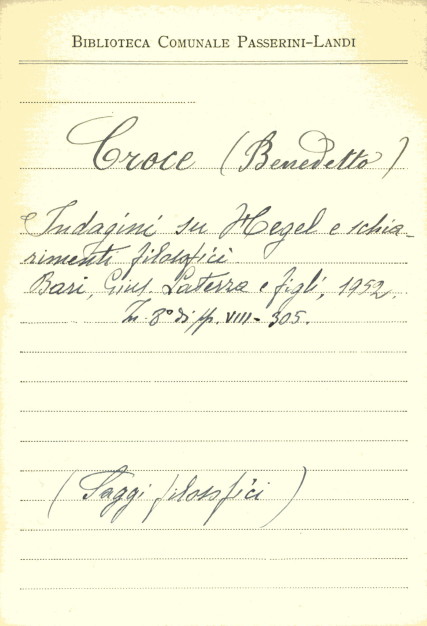 BIBLIOTECA COMUNALE PASSERINI-LANDI
Croce (Benedetto)
Indagini su Hegel e schia-
rimenti filosofici.
Bari, Gius. Laterza e figli, 1952.
In 8° di pp. VIII - 305.
(Saggi filosofici)